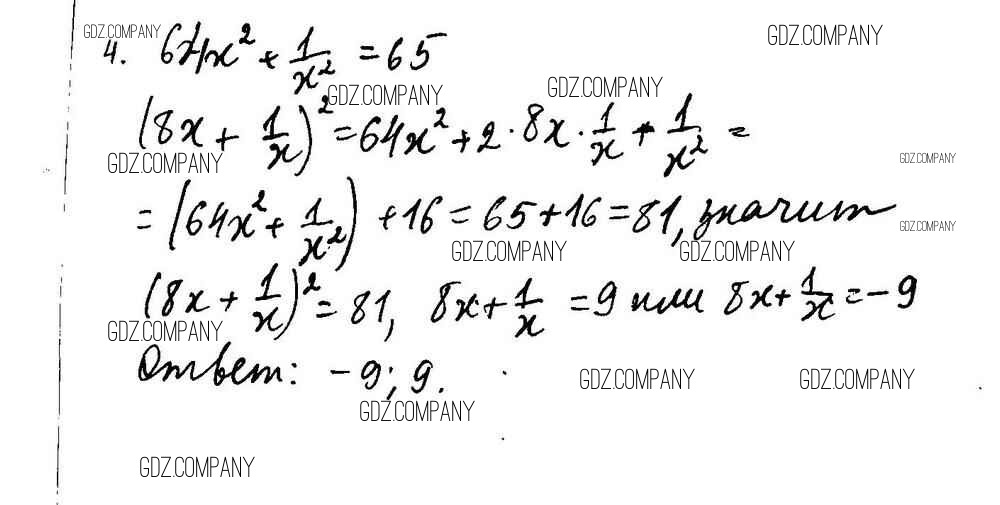 GDZ.COMPANY
GDZ.COMPANY
4. 64x² + 1/x² = 65
GDZ.COMPANY
GDZ.COMPANY
(8x + 1/x)² = 64x² + 2 · 8x · 1/x + 1/x² =
GDZ.COMPANY
GDZ.COMPANY
= (64x² + 1/x²) + 16 = 65 + 16 = 81, значит
GDZ.COMPANY
GDZ.COMPANY
GDZ.COMPANY
(8x + 1/x)² = 81, 8x + 1/x = 9 или 8x + 1/x = -9
GDZ.COMPANY
Ответ: -9; 9.
GDZ.COMPANY
GDZ.COMPANY
GDZ.COMPANY
GDZ.COMPANY